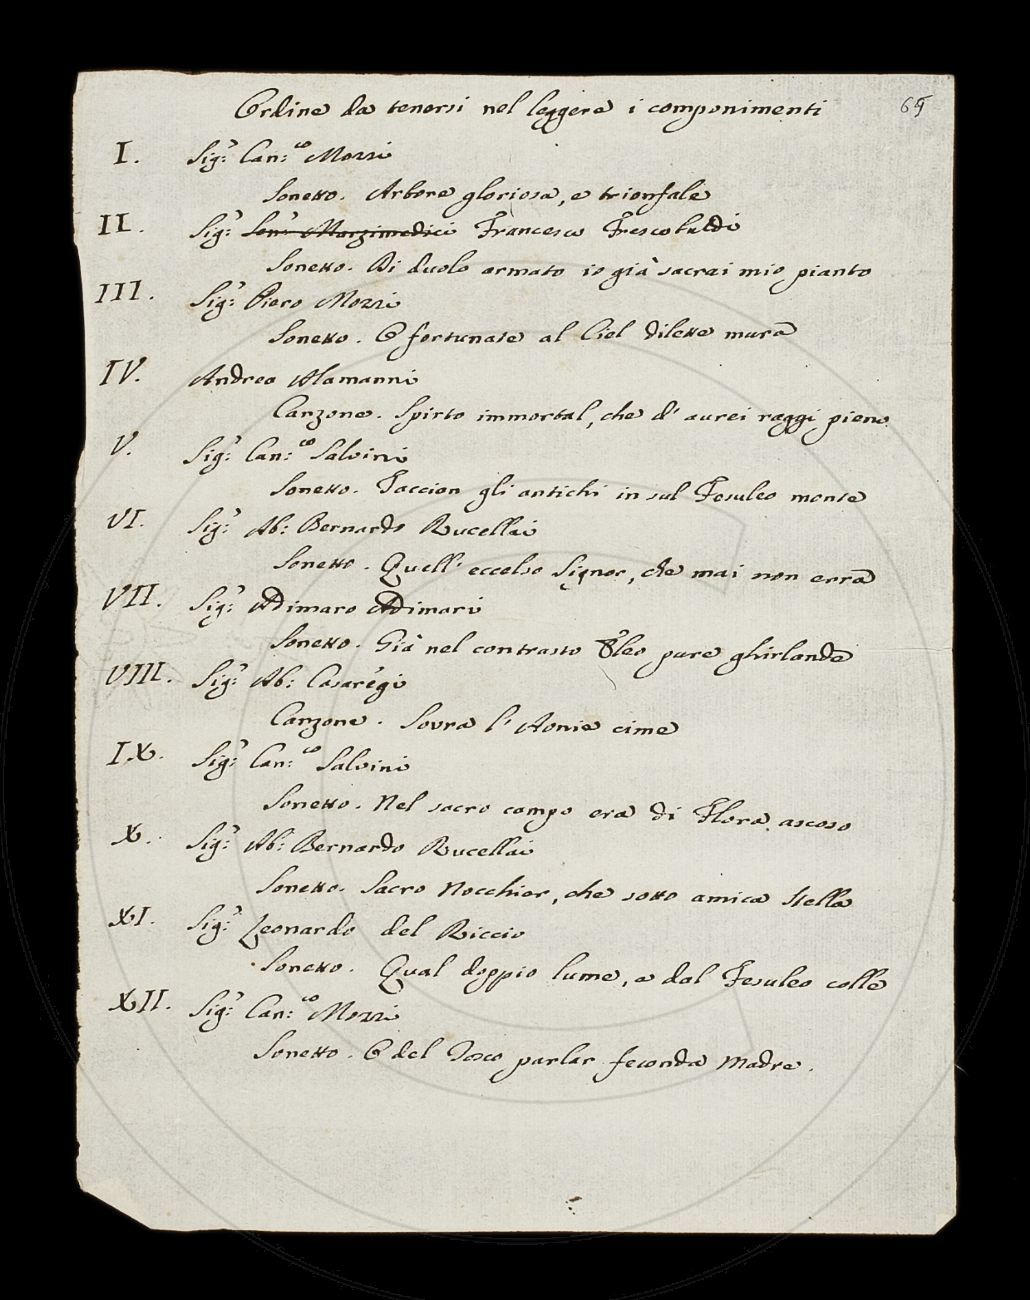 65
Ordine da tenersi nel leggere i componimenti
I. Sig.r Can.co Mozzi
Sonetto. Arbore gloriosa, e trionfale
II. Sig.r Sen.r Marzimedici Francesco Frescobaldi
Sonetto. Di duolo armato io già sacrai mio pianto
III. Sig.r Piero Mozzi
Sonetto. O fortunate al Ciel dilette mura
IV. Andrea Alamanni
Canzone. Spirto immortal, che d'aurei raggi pieno
V. Sig.r Can.co Salvini
Sonetto. Taccion gli antichi in sul Fesuleo monte
VI. Sig.r Ab: Bernardo Rucellai
Sonetto. Quell'eccelso Signor, che mai non erra
VII. Sig.r Adimaro Adimari
Sonetto. Già nel contrasto Eleo pure ghirlande
VIII. Sig.r Ab: Casarègi
Canzone. Sovra l'Aonie cime
IX. Sig.r Can.co Salvini
Sonetto. Nel sacro campo era di Flora ascoso
X. Sig.r Ab: Bernardo Rucellai
Sonetto. Sacro Nocchier, che sotto amica Stella
XI. Sig.r Leonardo del Riccio
Sonetto. Qual doppio lume, e dal Fesuleo colle
XII. Sig.r Can.co Mozzi
Sonetto. O del Tosco parlar feconda Madre.